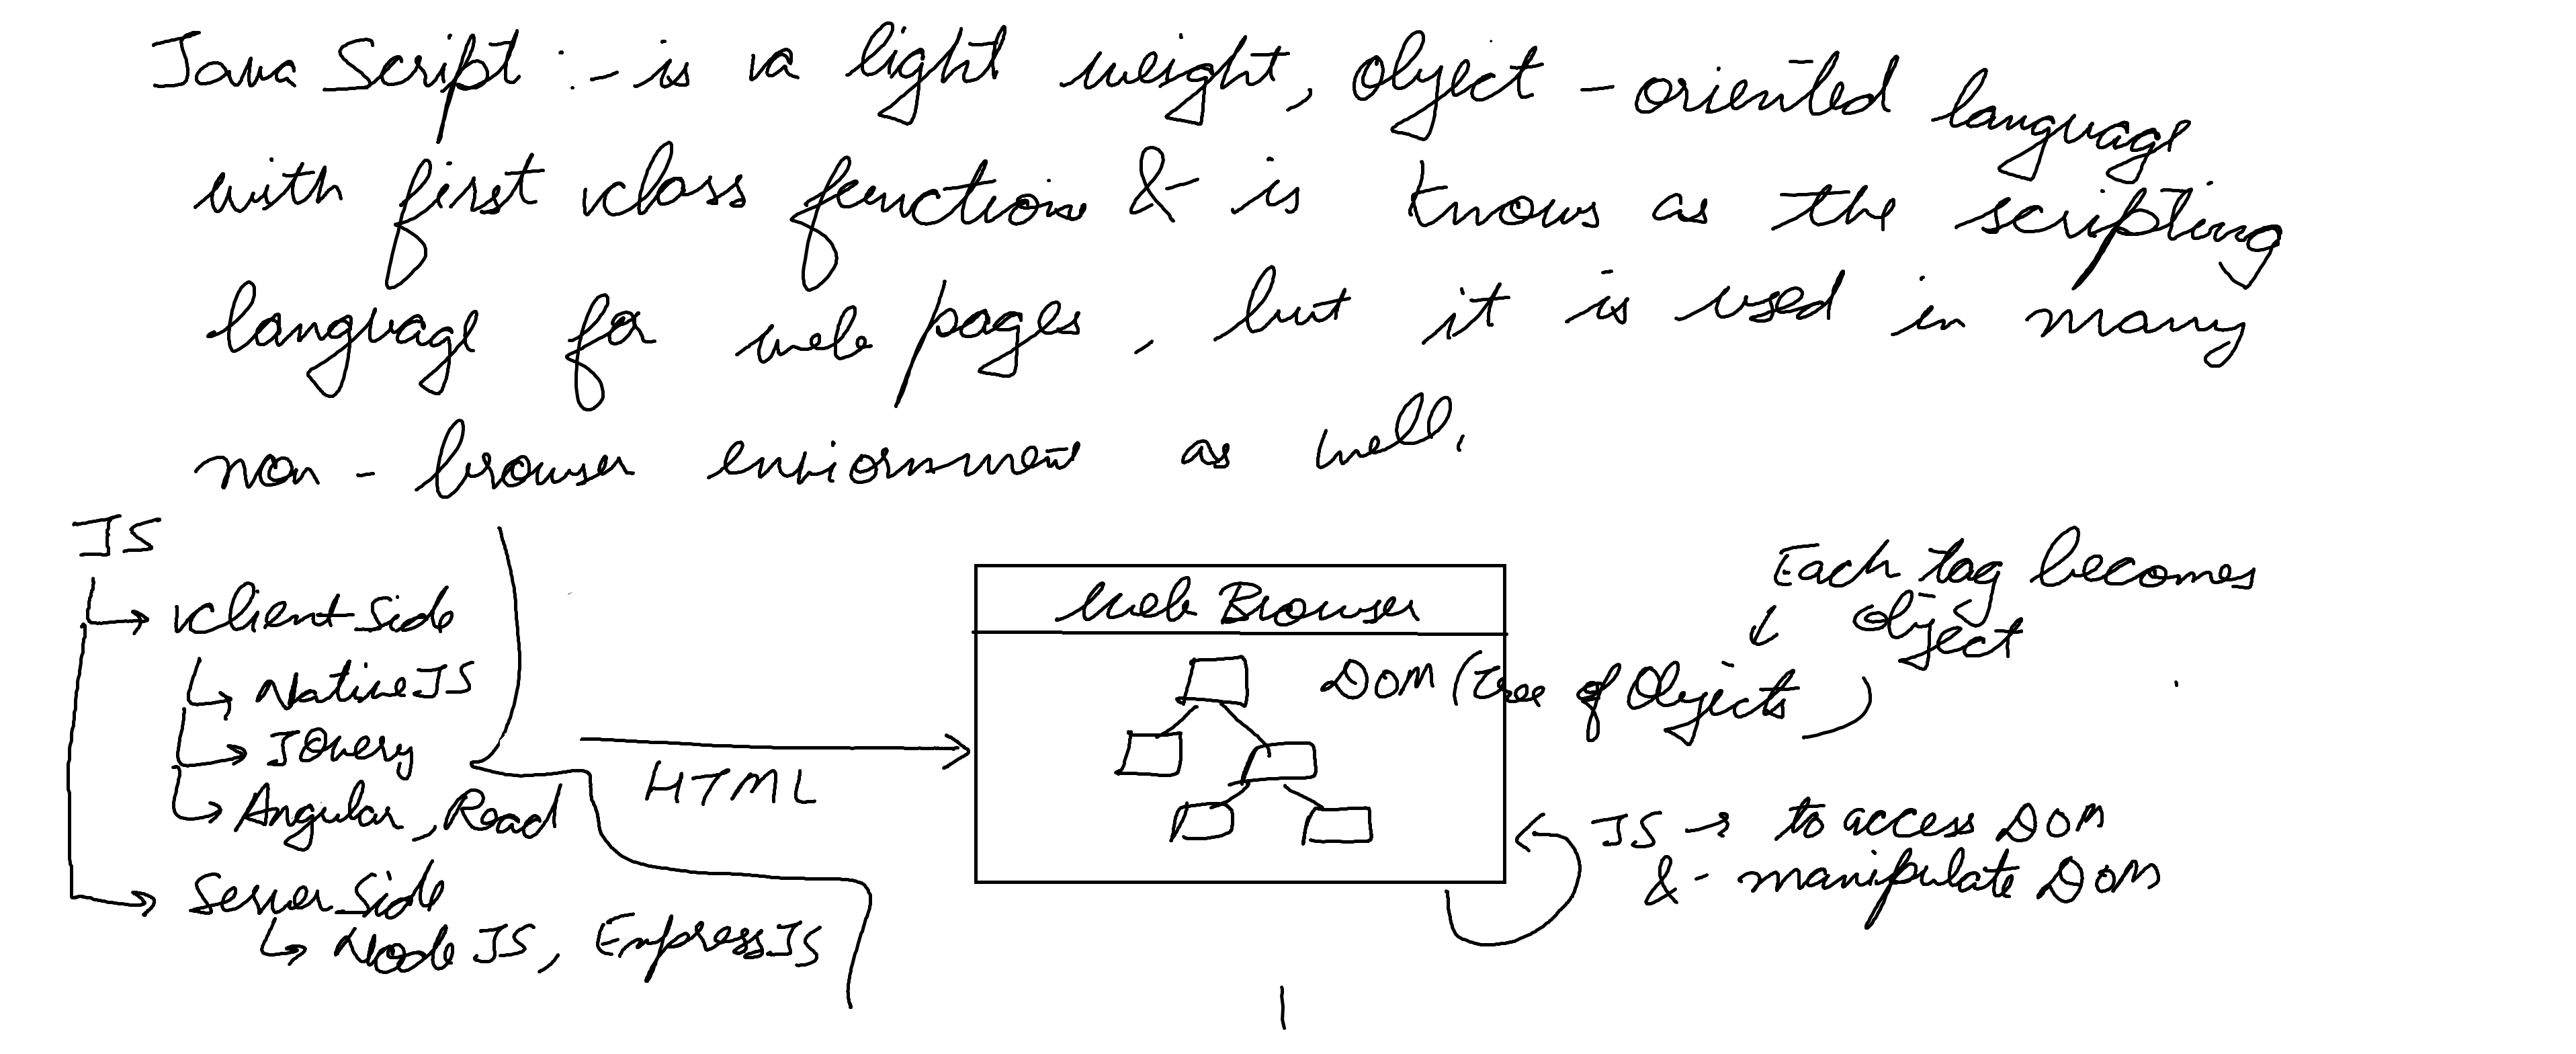 Java Script :- is a light weight, object - oriented language
with first class function & is knows as the scripting
language for web pages, but it is used in many
non - browser enviornment as well.
JS
Client Side
Native JS
JQuery
Angular, React
Server Side
Node JS, Express JS
HTML
Web Browser
DOM (Tree of Objects)
Each tag becomes
object
JS → to access DOM
& manipulate DOM